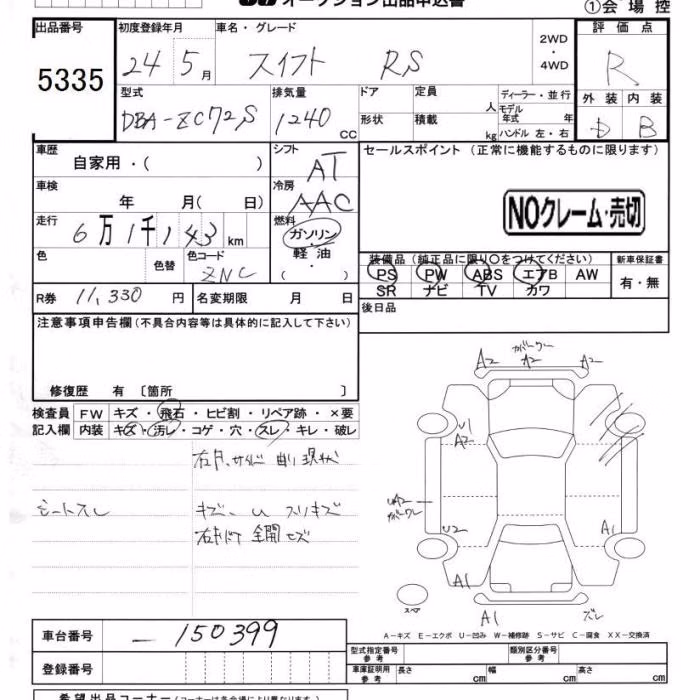 オークション出品申込書
①会場控
出品番号 初度登録年月 車名・グレード 2WD・4WD 評価点
5335 24 5月 スイフト RS R
型式 排気量 ドア 定員 人 ディーラー・並行 外装 内装
DBA-ZC72S 1240 cc 形状 積載 kg モデル年式 年 ハンドル 左・右 D B
車歴 シフト セールスポイント (正常に機能するものに限ります)
自家用・( ) AT
車検 冷房
年 月(日) AAC
NOクレーム・売切
走行 燃料
6万1千143km ガソリン・
軽油・
( )
色 色替 色コード
ZNC
装備品 (純正品に限り○をつけてください) 新車保証書
PS PW ABS エアB AW 有・無
SR ナビ TV カワ
R券 11,330円 名変期限 月 日
後日品
注意事項申告欄(不具合内容等は具体的に記入して下さい)
修復歴 有 〔箇所 〕
検査員 FW キズ・飛石・ヒビ割・リペア跡・×要
記入欄 内装 キズ・汚レ・コゲ・穴・スレ・キレ・破レ
現状
シートスレ キズ、U スリキズ
A2 A2 A2
U1
A2
U2 A1
A1
スペア A1 ズレ
A-キズ E-エクボ U-凹み W-補修跡 S-サビ C-腐食 XX-交換済
車台番号 -150399
型式指定番号 参考 類別区分番号 参考
登録番号
車庫証明用 参考 長さ cm 幅 cm 高さ cm
希望出品コーナー